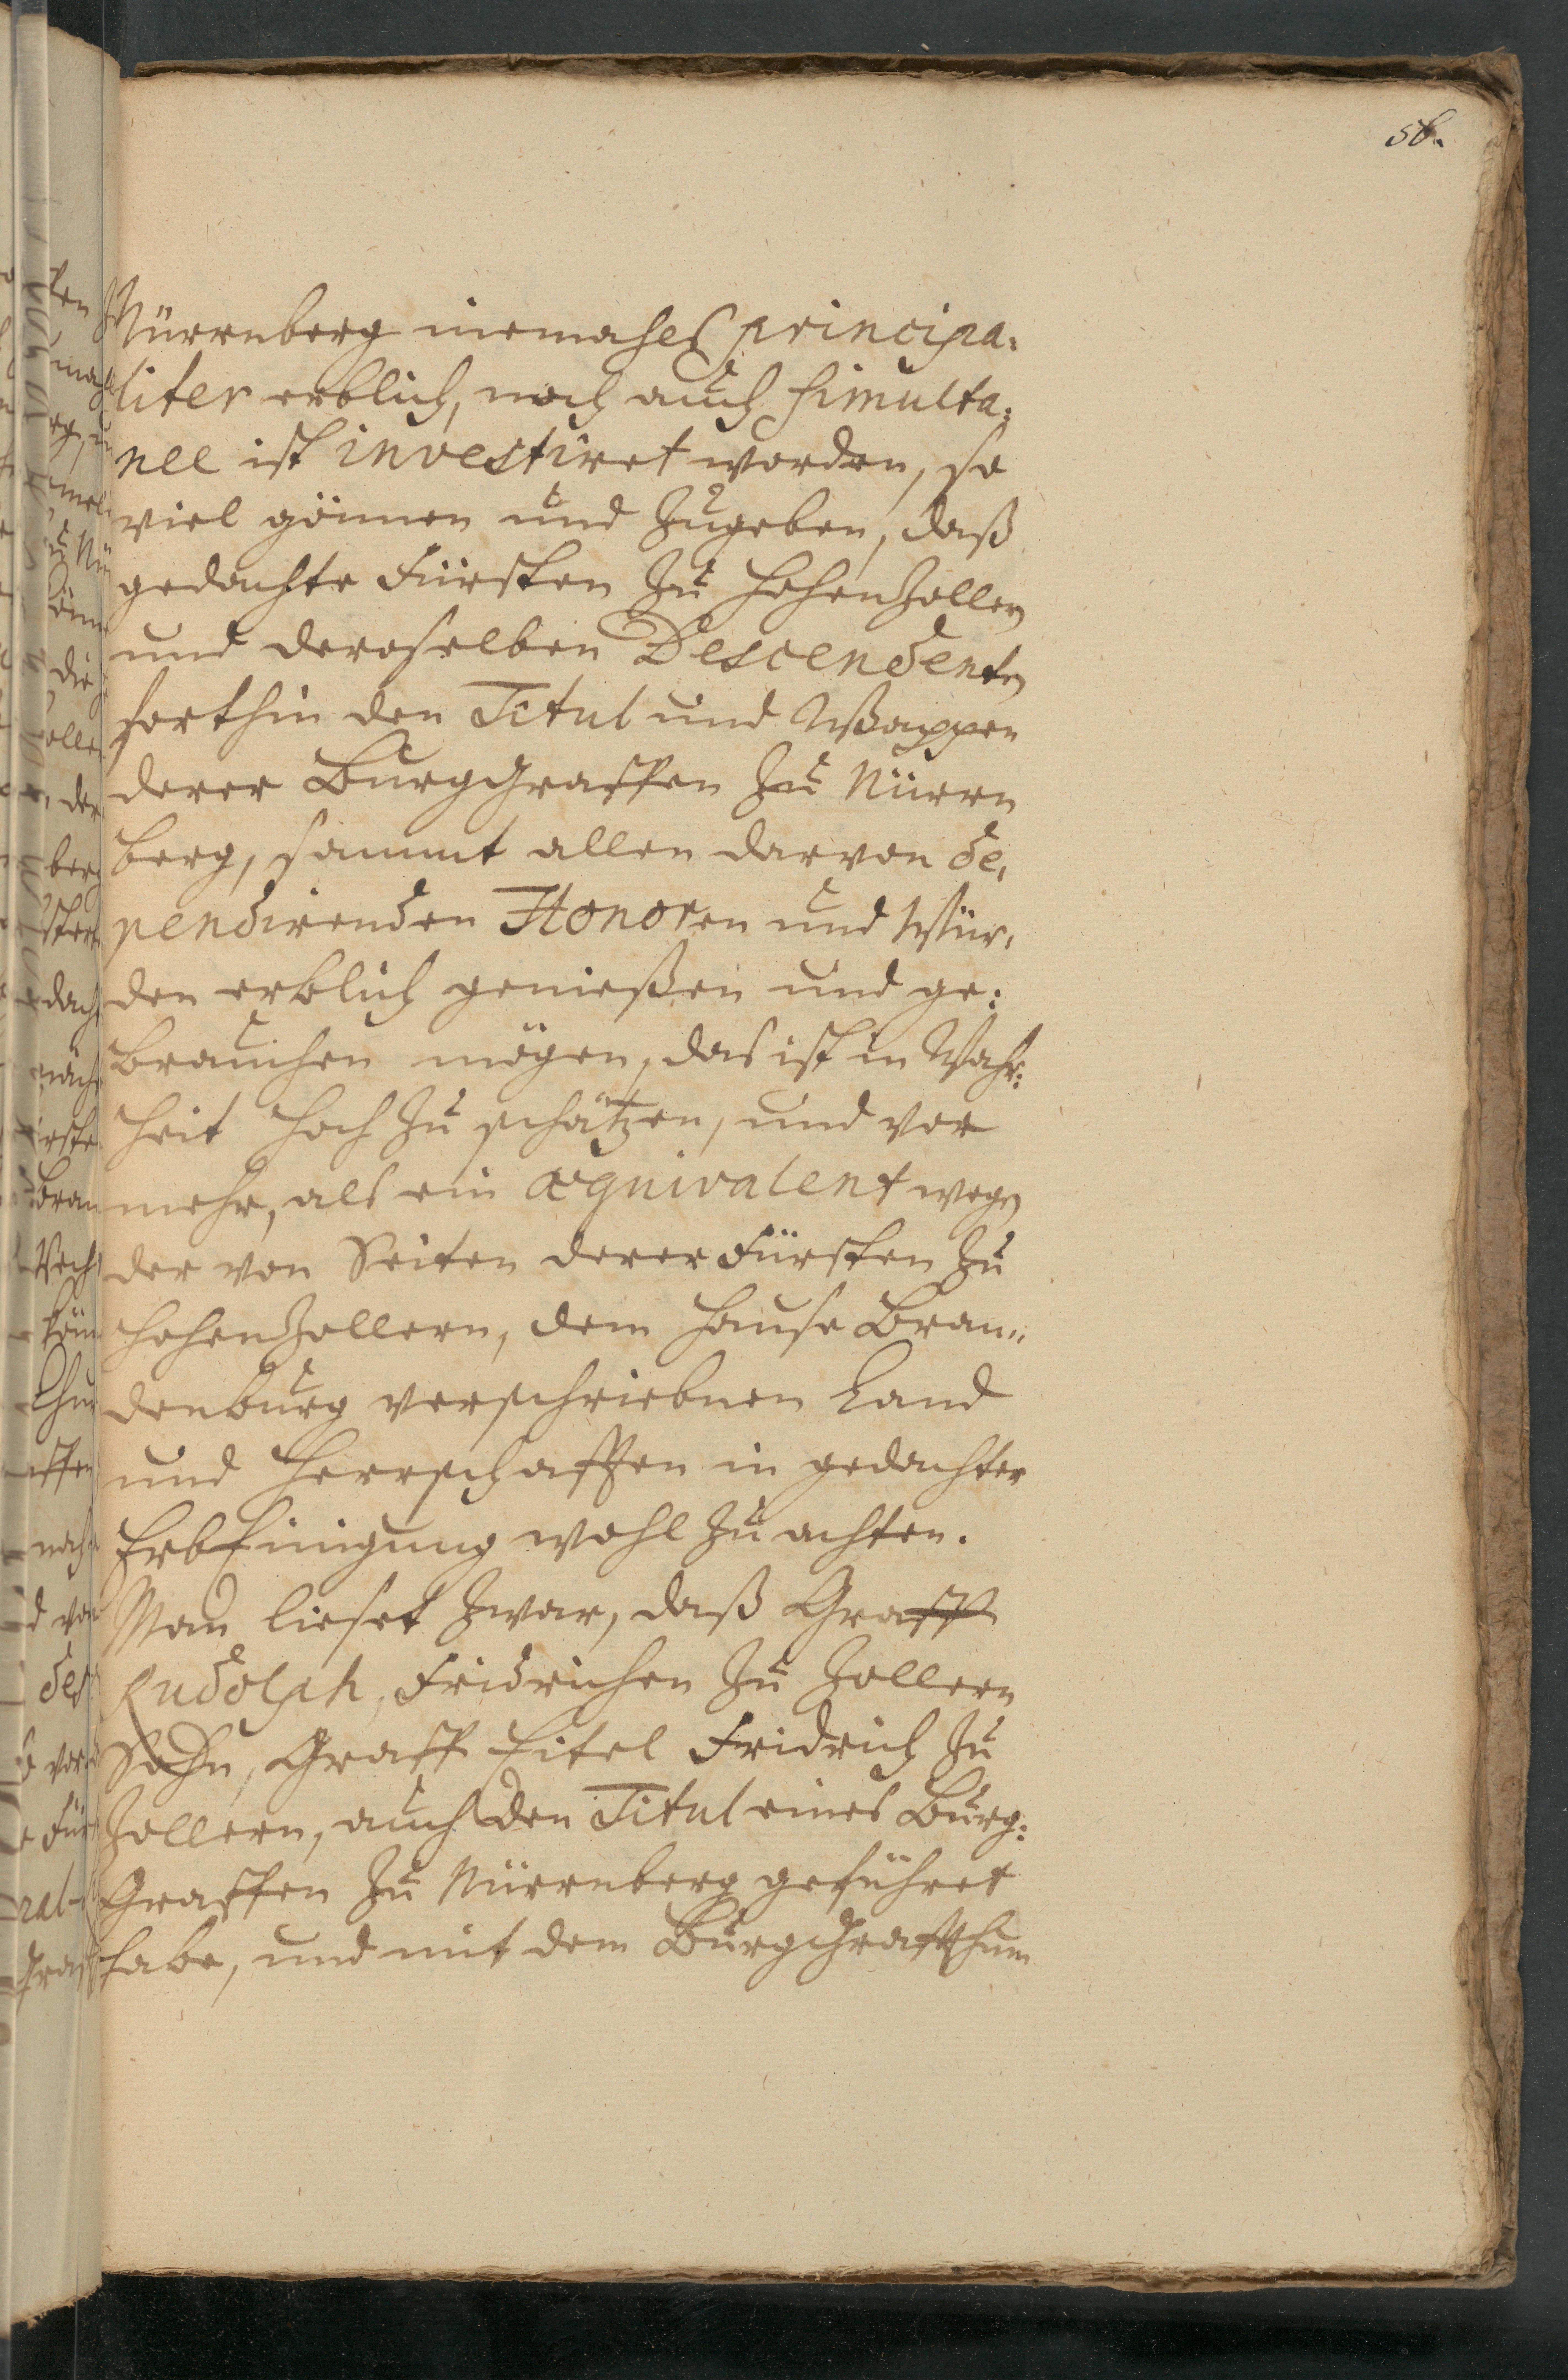 56.
Nürrnberg niemahls principa-
liter erblich, noch auch simulta-
nee ist investiret worden, so
viel gönnen und Zugeben, daß
gedachte Fürsten Zu HohenZollern
und deroselben Descendenten
forthin den Titul und Wappen
derer BurgGraffen Zu Nürrn
berg, sammt allen darvon de-
pendirenden Honoren und Wür-
den erblich genießen und ge-
brauchen mögen, das ist in Wahr-
heit hoch Zu schätzen, und vor
mehr, als ein æquivalent wegen
der von Seiten derer Fürsten Zu
HohenZollern, dem Hause Bran-
denburg verschriebnen Land
und Herrschafften in gedachter
ErbEinigung wohl Zu achten.
Man lieset Zwar, daß Graff
Rudolph, Fridrichen Zu Zollern
Sohn, Graff Eitel Fridrich Zu
Zollern, auch den Titul eines Burg-
Graffen Zu Nürrnberg geführet
habe, und mit dem BurgGraffthum